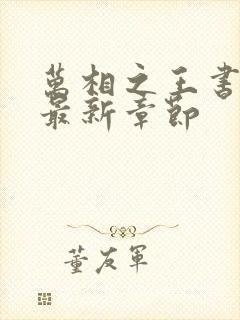 萬相之王書
最新章節
董友軍